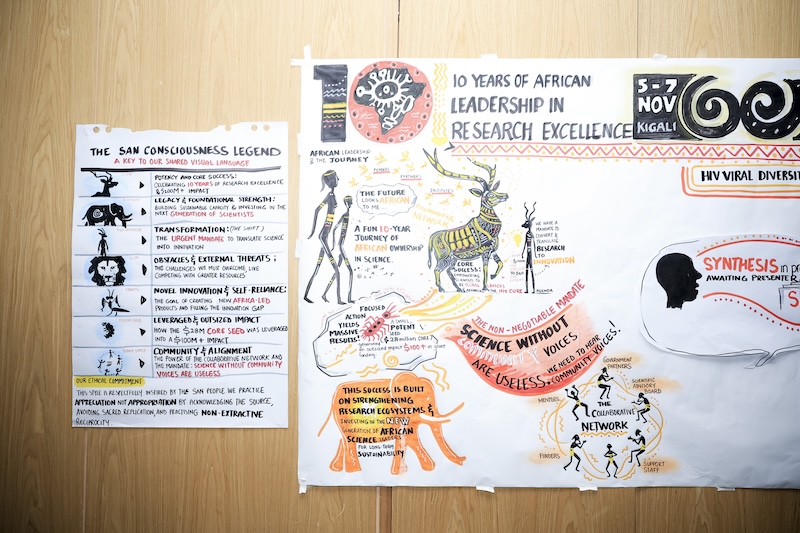 THE SAN CONSCIOUSNESS LEGEND
A KEY TO OUR SHARED VISUAL LANGUAGE
POTENCY AND CORE SUCCESS:
CELEBRATING 10 YEARS OF RESEARCH EXCELLENCE
& $100M+ IMPACT
LEGACY & FOUNDATIONAL STRENGTH:
BUILDING SUSTAINABLE CAPACITY & INVESTING IN THE
NEXT GENERATION OF SCIENTISTS
TRANSFORMATION: (THE SHIFT)
THE URGENT MANDATE TO TRANSLATE SCIENCE
INTO INNOVATION
OBSTACLES & EXTERNAL THREATS;
THE CHALLENGES WE MUST OVERCOME, LIKE
COMPETING WITH GREATER RESOURCES
NOVEL INNOVATION & SELF-RELIANCE:
THE GOAL OF CREATING NEW AFRICA-LED
PRODUCTS AND FILLING THE INNOVATION GAP
LEVERAGED & OUTSIZED IMPACT
HOW THE $28M CORE SEED WAS LEVERAGED
INTO A $100M+ IMPACT
COMMUNITY & ALIGNMENT
THE POWER OF THE COLLABORATIVE NETWORK AND
THE MANDATE: SCIENCE WITHOUT COMMUNITY
VOICES ARE USELESS
OUR ETHICAL COMMITMENT
THIS STYLE IS RESPECTFULLY INSPIRED BY THE SAN PEOPLE. WE PRACTICE
APPRECIATION NOT APPROPRIATION BY ACKNOWLEDGING THE SOURCE,
AVOIDING SACRED REPLICATION, AND PRACTISING NON-EXTRACTIVE
RECIPROCITY.
10
10 YEARS OF AFRICAN
LEADERSHIP IN
RESEARCH EXCELLENCE
5-7
NOV
KIGALI
AFRICAN LEADERSHIP
& THE JOURNEY
THE FUTURE
LOOKS AFRICAN
TO ME
A FUN 10-YEAR
JOURNEY OF
AFRICAN OWNERSHIP
IN SCIENCE.
FUNDERS
PARTNERS
INSTITUTES
NETWORKS
CORE
SUCCESS:
WE HAVE A
MANDATE TO
CONVERT &
TRANSLATE
RESEARCH
TO
INNOVATION
AGENDA
FOCUSED
ACTION
YIELDS
MASSIVE
RESULTS!
A SMALL
POTENT
SEED
THE NON-NEGOTIABLE MANDATE
SCIENCE WITHOUT
COMMUNITY VOICES
ARE USELESS.
WE NEED TO HEAR
COMMUNITY VOICES!
THIS SUCCESS IS BUILT
ON STRENGTHENING
RESEARCH ECOSYSTEMS &
INVESTING IN THE NEW
GENERATION OF AFRICAN
SCIENCE LEADERS
FOR LONG-TERM
SUSTAINABILITY
GOVERNMENT
PARTNERS
SCIENTIFIC
ADVISORY
BOARD
MENTORS
THE
COLLABORATIVE
NETWORK
FUNDERS
SUPPORT
STAFF
HIV VIRAL DIVERSI
SYNTHESIS in p
AWAITING PRESENTER